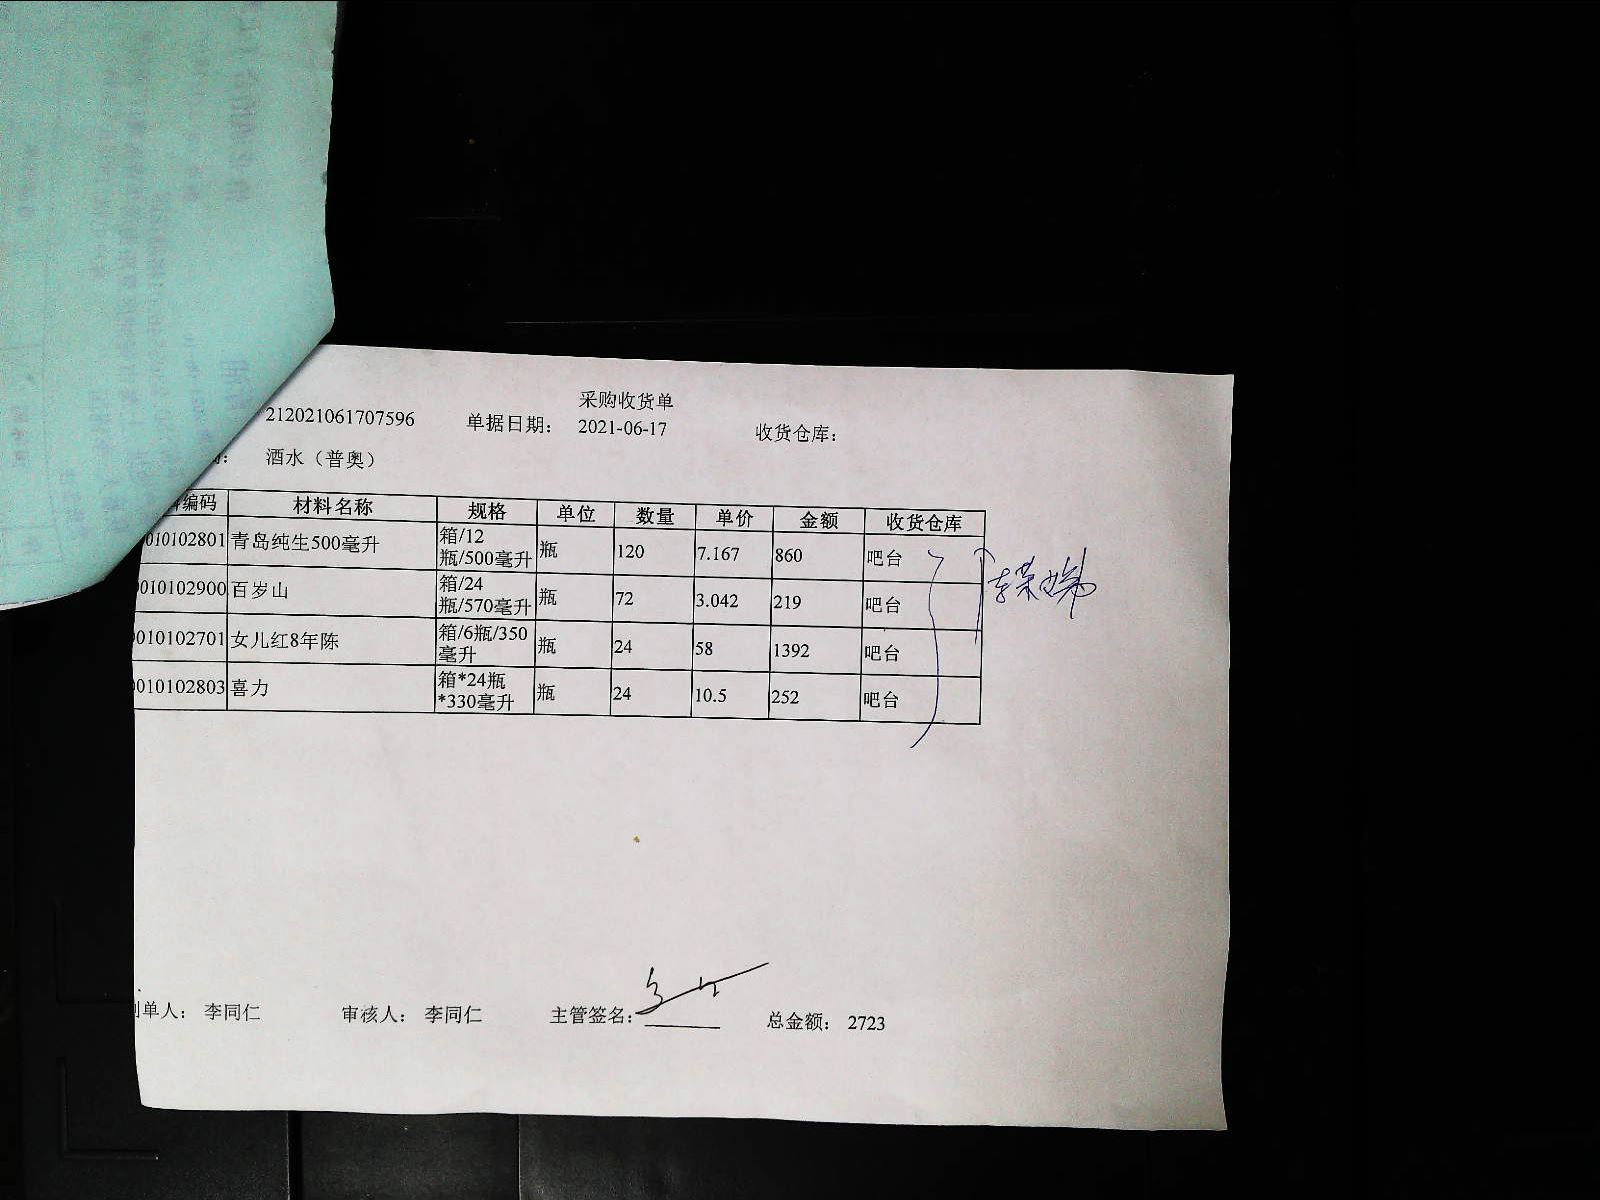 采购收货单
212021061707596 单据日期： 2021-06-17 收货仓库：
酒水（普奥）
编码 材料名称 规格 单位 数量 单价 金额 收货仓库
010102801 青岛纯生500毫升 箱/12瓶/500毫升 瓶 120 7.167 860 吧台
010102900 百岁山 箱/24瓶/570毫升 瓶 72 3.042 219 吧台
010102701 女儿红8年陈 箱/6瓶/350毫升 瓶 24 58 1392 吧台
010102803 喜力 箱*24瓶*330毫升 瓶 24 10.5 252 吧台
单人： 李同仁 审核人： 李同仁 主管签名： 总金额： 2723